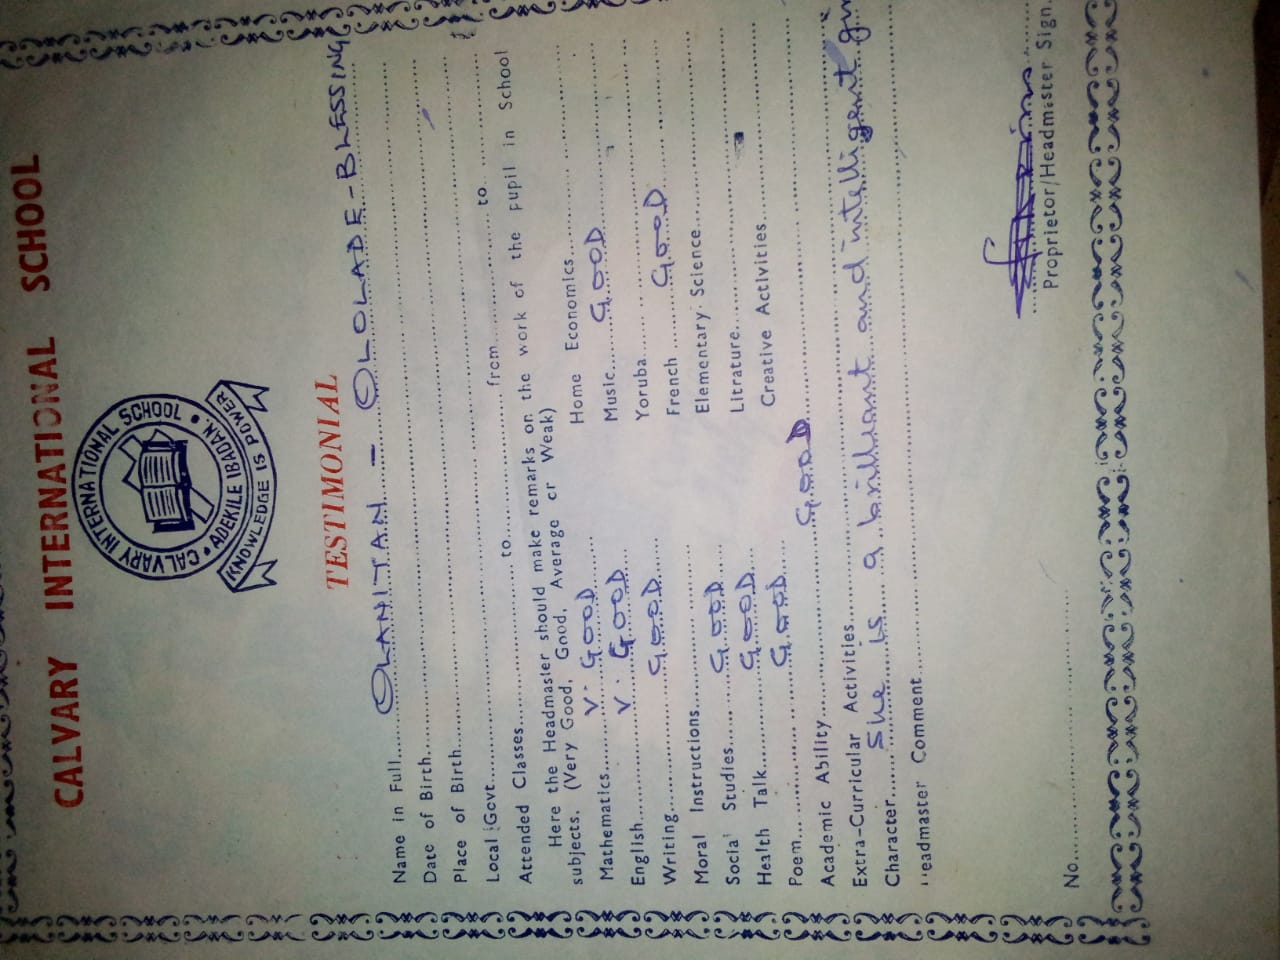 CALVARY INTERNATIONAL SCHOOL
CALVARY INTERNATIONAL SCHOOL • ADEKILE IBADAN. •
KNOWLEDGE IS POWER
TESTIMONIAL
Name in Full OLANITAN - OLOLADE-BLESSING
Date of Birth
Place of Birth
Local Govt. from to
Attended Classes to
Here the Headmaster should make remarks on the work of the Pupil in School
subjects. (Very Good, Good, Average or Weak)
Mathematics V. GOOD
English V. GOOD
Writing GOOD
Moral Instructions
Social Studies GOOD
Health Talk GOOD
Poem GOOD
Home Economics
Music GOOD
Yoruba
French GOOD
Elementary Science
Litrature
Creative Activities
Academic Ability GOOD
Extra-Curricular Activities
Character She is a brilliant and intelligent
Headmaster Comment
Proprietor/Headmaster Sign.
No.